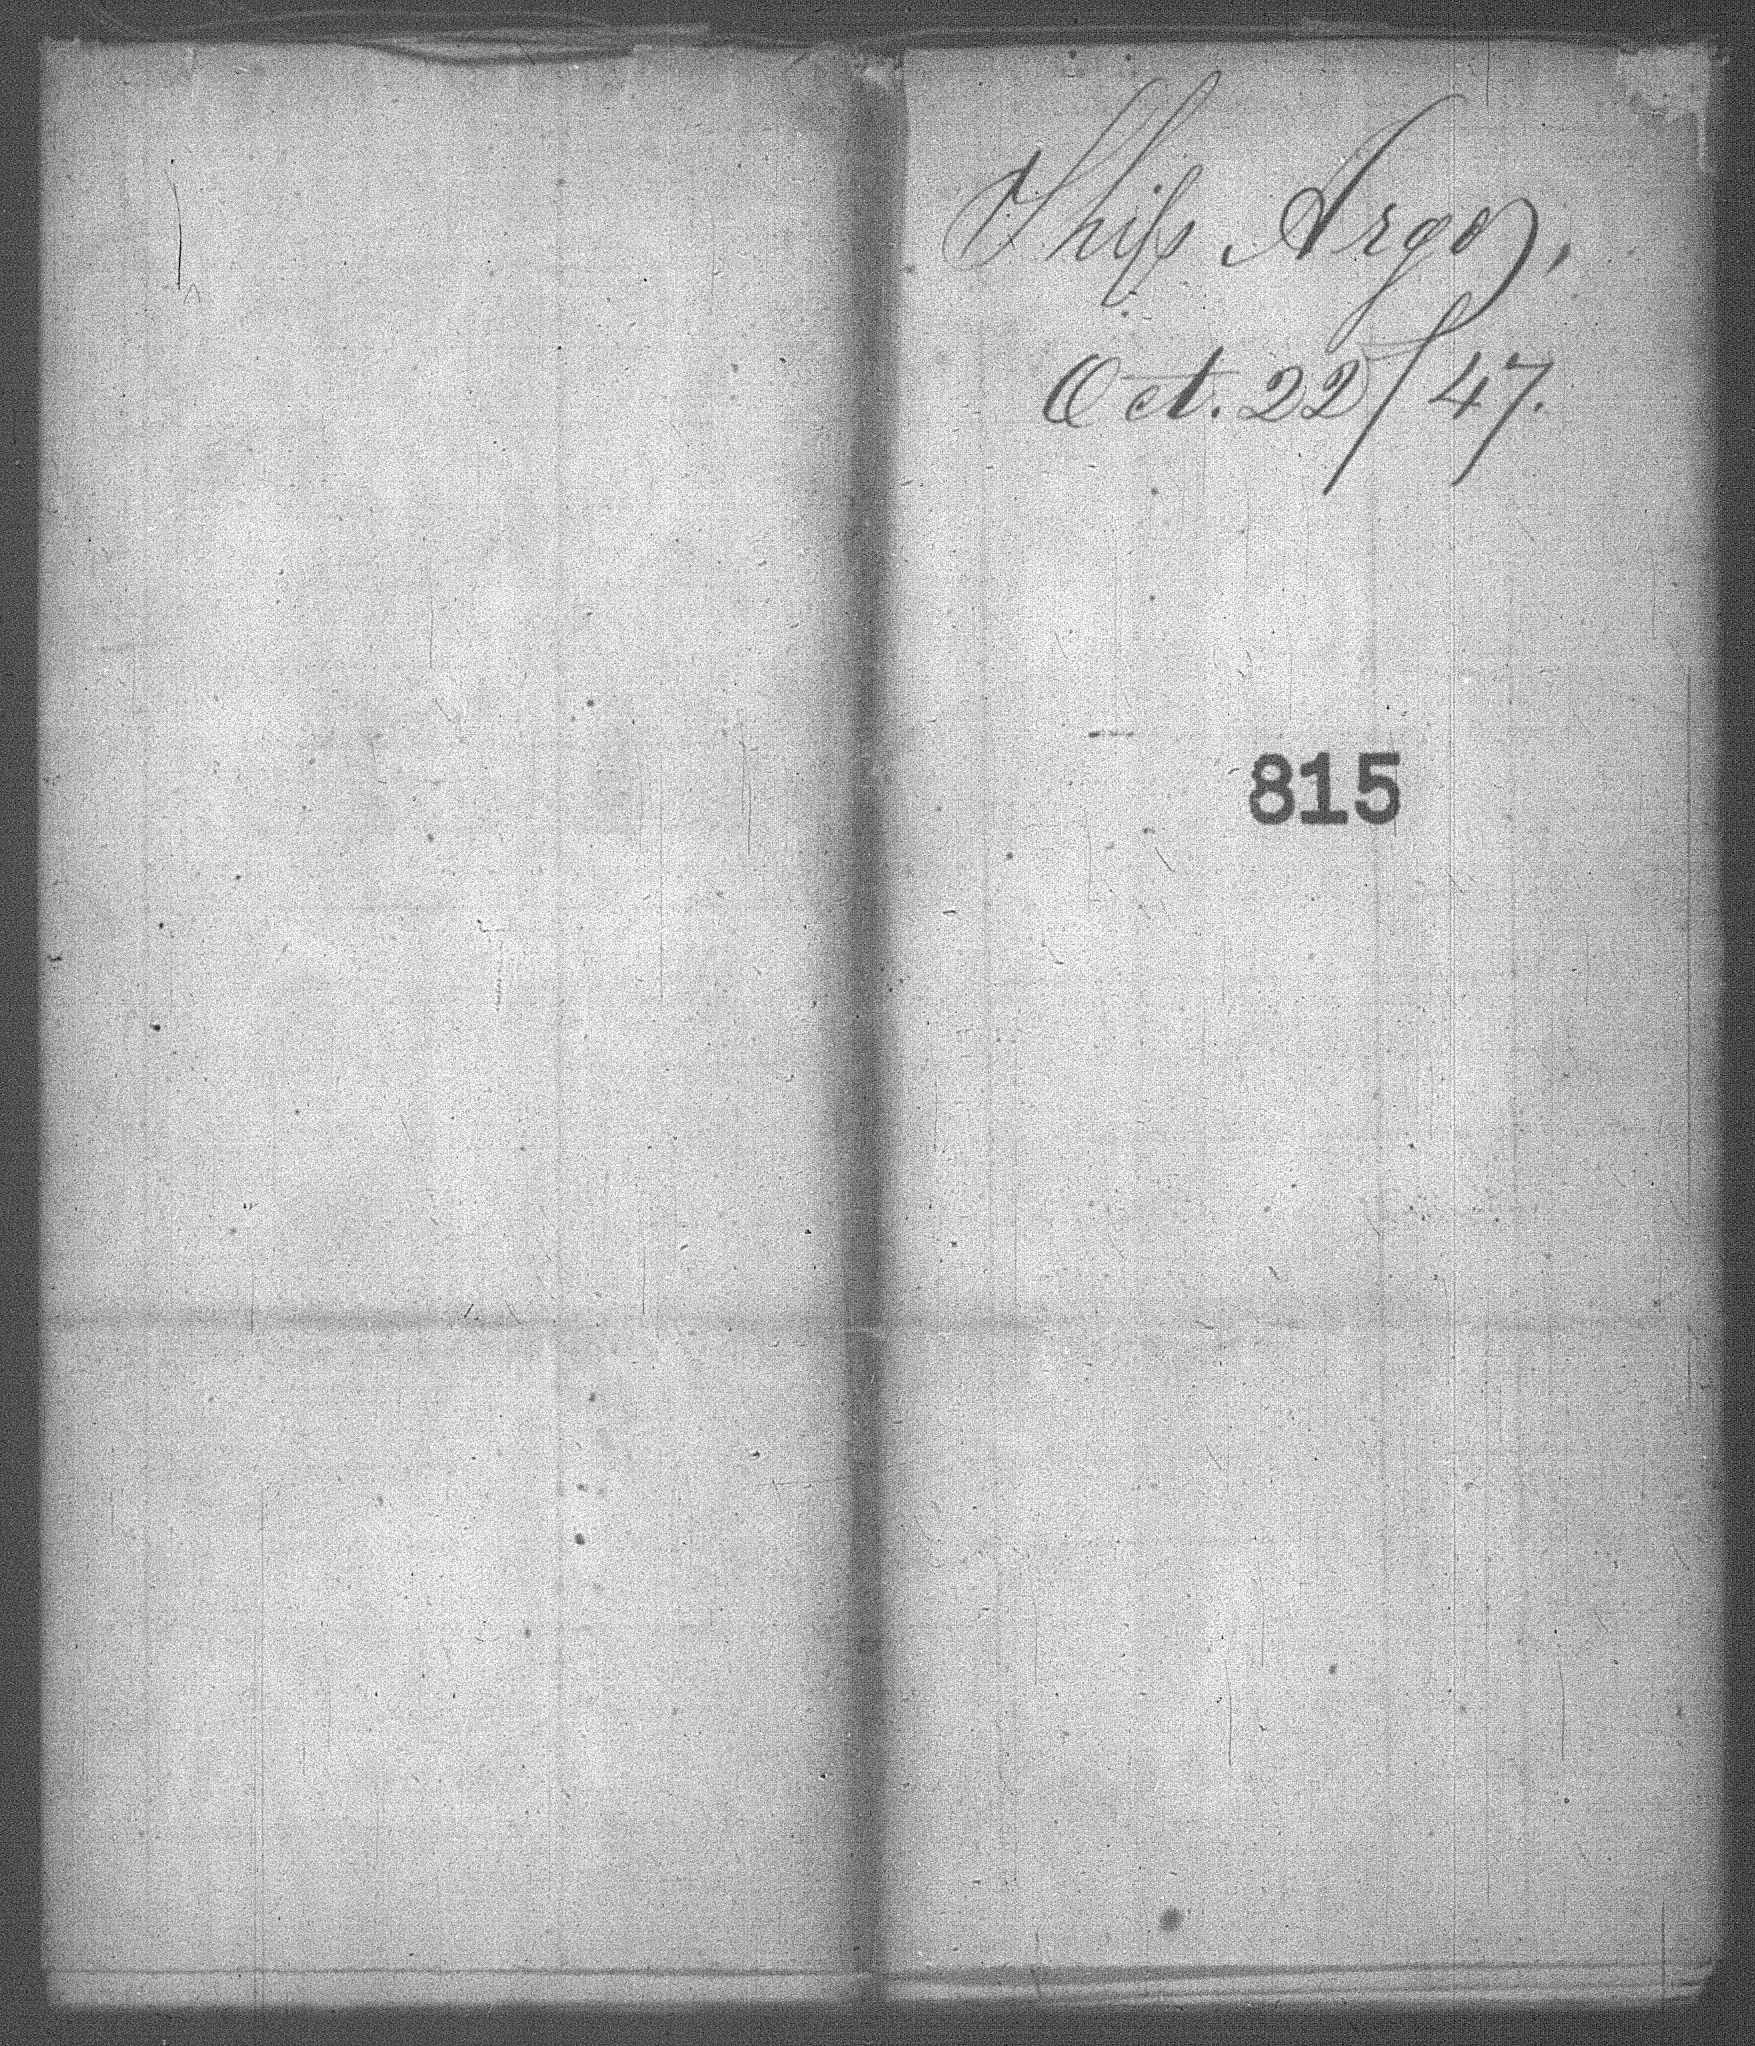 Ship Argo,
Oct. 22/47.
815